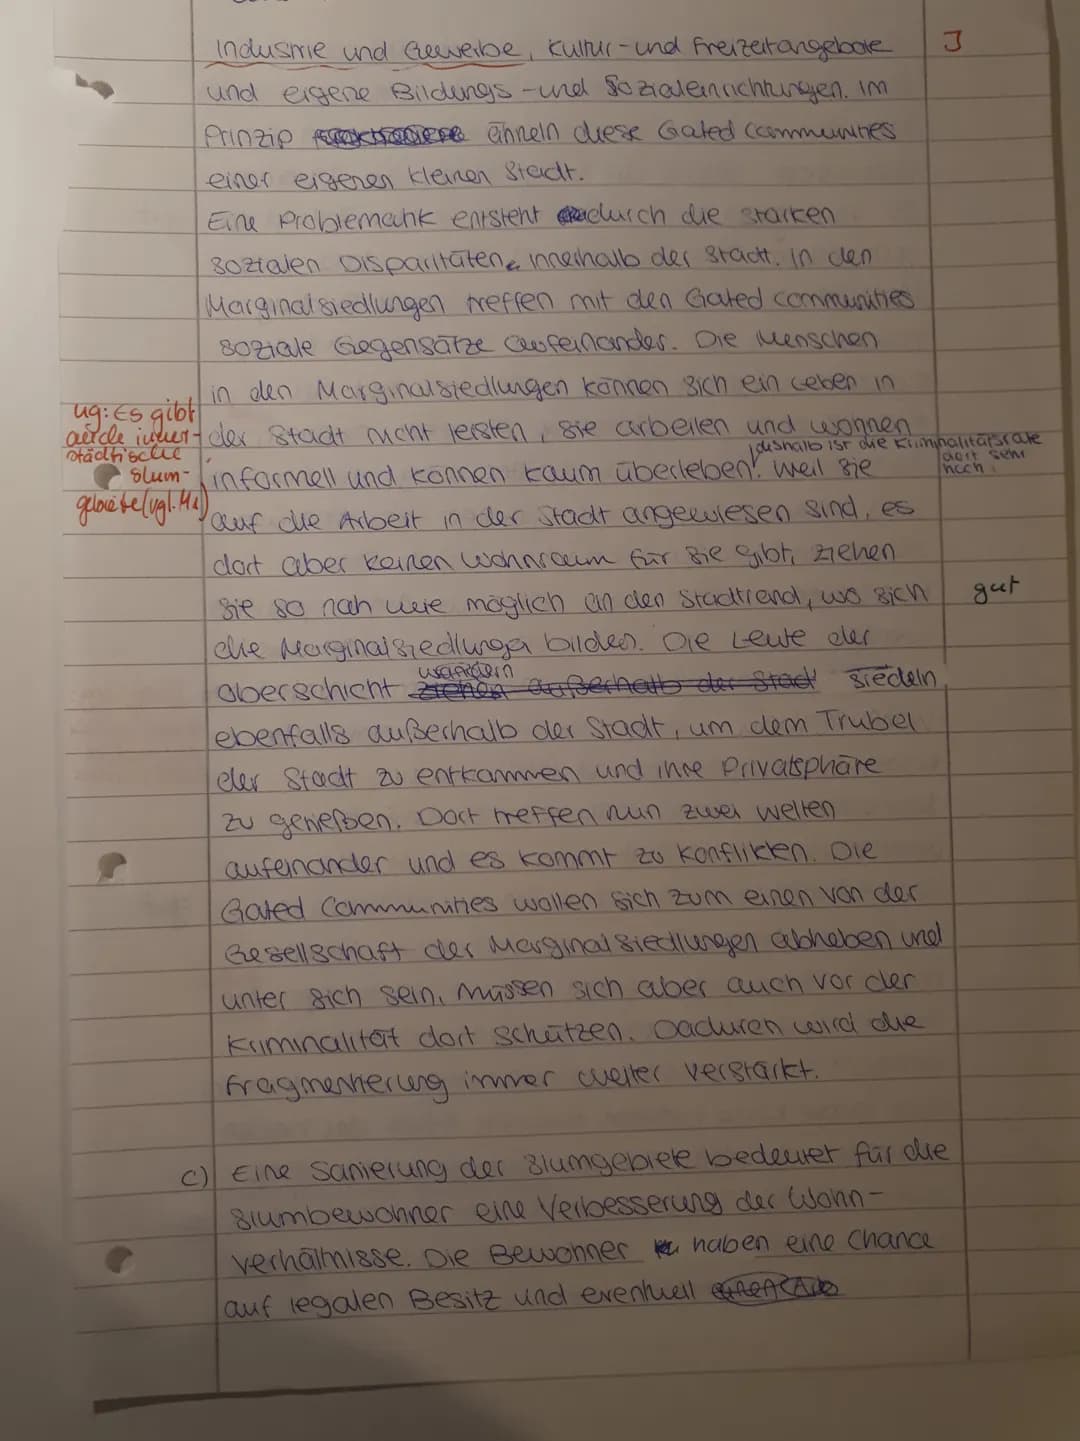 Industrie und Gewerbe, Kultur- und Freizeitangebote
J
und eigene Bildungs- und Sozialeinrichtungen. Im
Prinzip ähneln diese Gated Communities
einer eigenen kleinen Stadt.
Eine Problematik entsteht durch die starken
sozialen Disparitäten innerhalb der Stadt. In den
Marginalsiedlungen treffen mit den Gated communities
soziale Gegensätze aufeinander. Die Menschen
in den Marginalsiedlungen können sich ein Leben in
ug: Es gibt
auch inner-
städtische
Slum-
gebiete (vgl. M1)
der Stadt nicht leisten, sie arbeiten und wohnen
deshalb ist die Kriminalitätsrate
dort sehr
hoch.
informell und können kaum überleben. Weil sie
auf die Arbeit in der Stadt angewiesen sind, es
dort aber keinen Wohnraum für sie gibt, ziehen
sie so nah wie möglich an den Stadtrand, wo sich
gut
die Marginalsiedlunga bilden. Die Leute der
wandern
Oberschicht ziehen außerhalb der Stadt siedeln
ebenfalls außerhalb der Stadt, um dem Trubel
der Stadt zu entkommen und ihre Privatsphäre
zu genießen. Dort treffen nun zwei Welten
aufeinander und es kommt zu Konflikten. Die
Gated Communities wollen sich zum einen von der
Gesellschaft der Marginalsiedlungen abheben und
unter sich sein, müssen sich aber auch vor der
Kriminalität dort schützen. Dadurch wird die
Fragmentierung immer weiter verstärkt.
c) Eine Sanierung der Slumgebiete bedeutet für die
Slumbewohner eine Verbesserung der Wohn-
verhältnisse. Die Bewohner haben eine Chance
auf legalen Besitz und eventuell